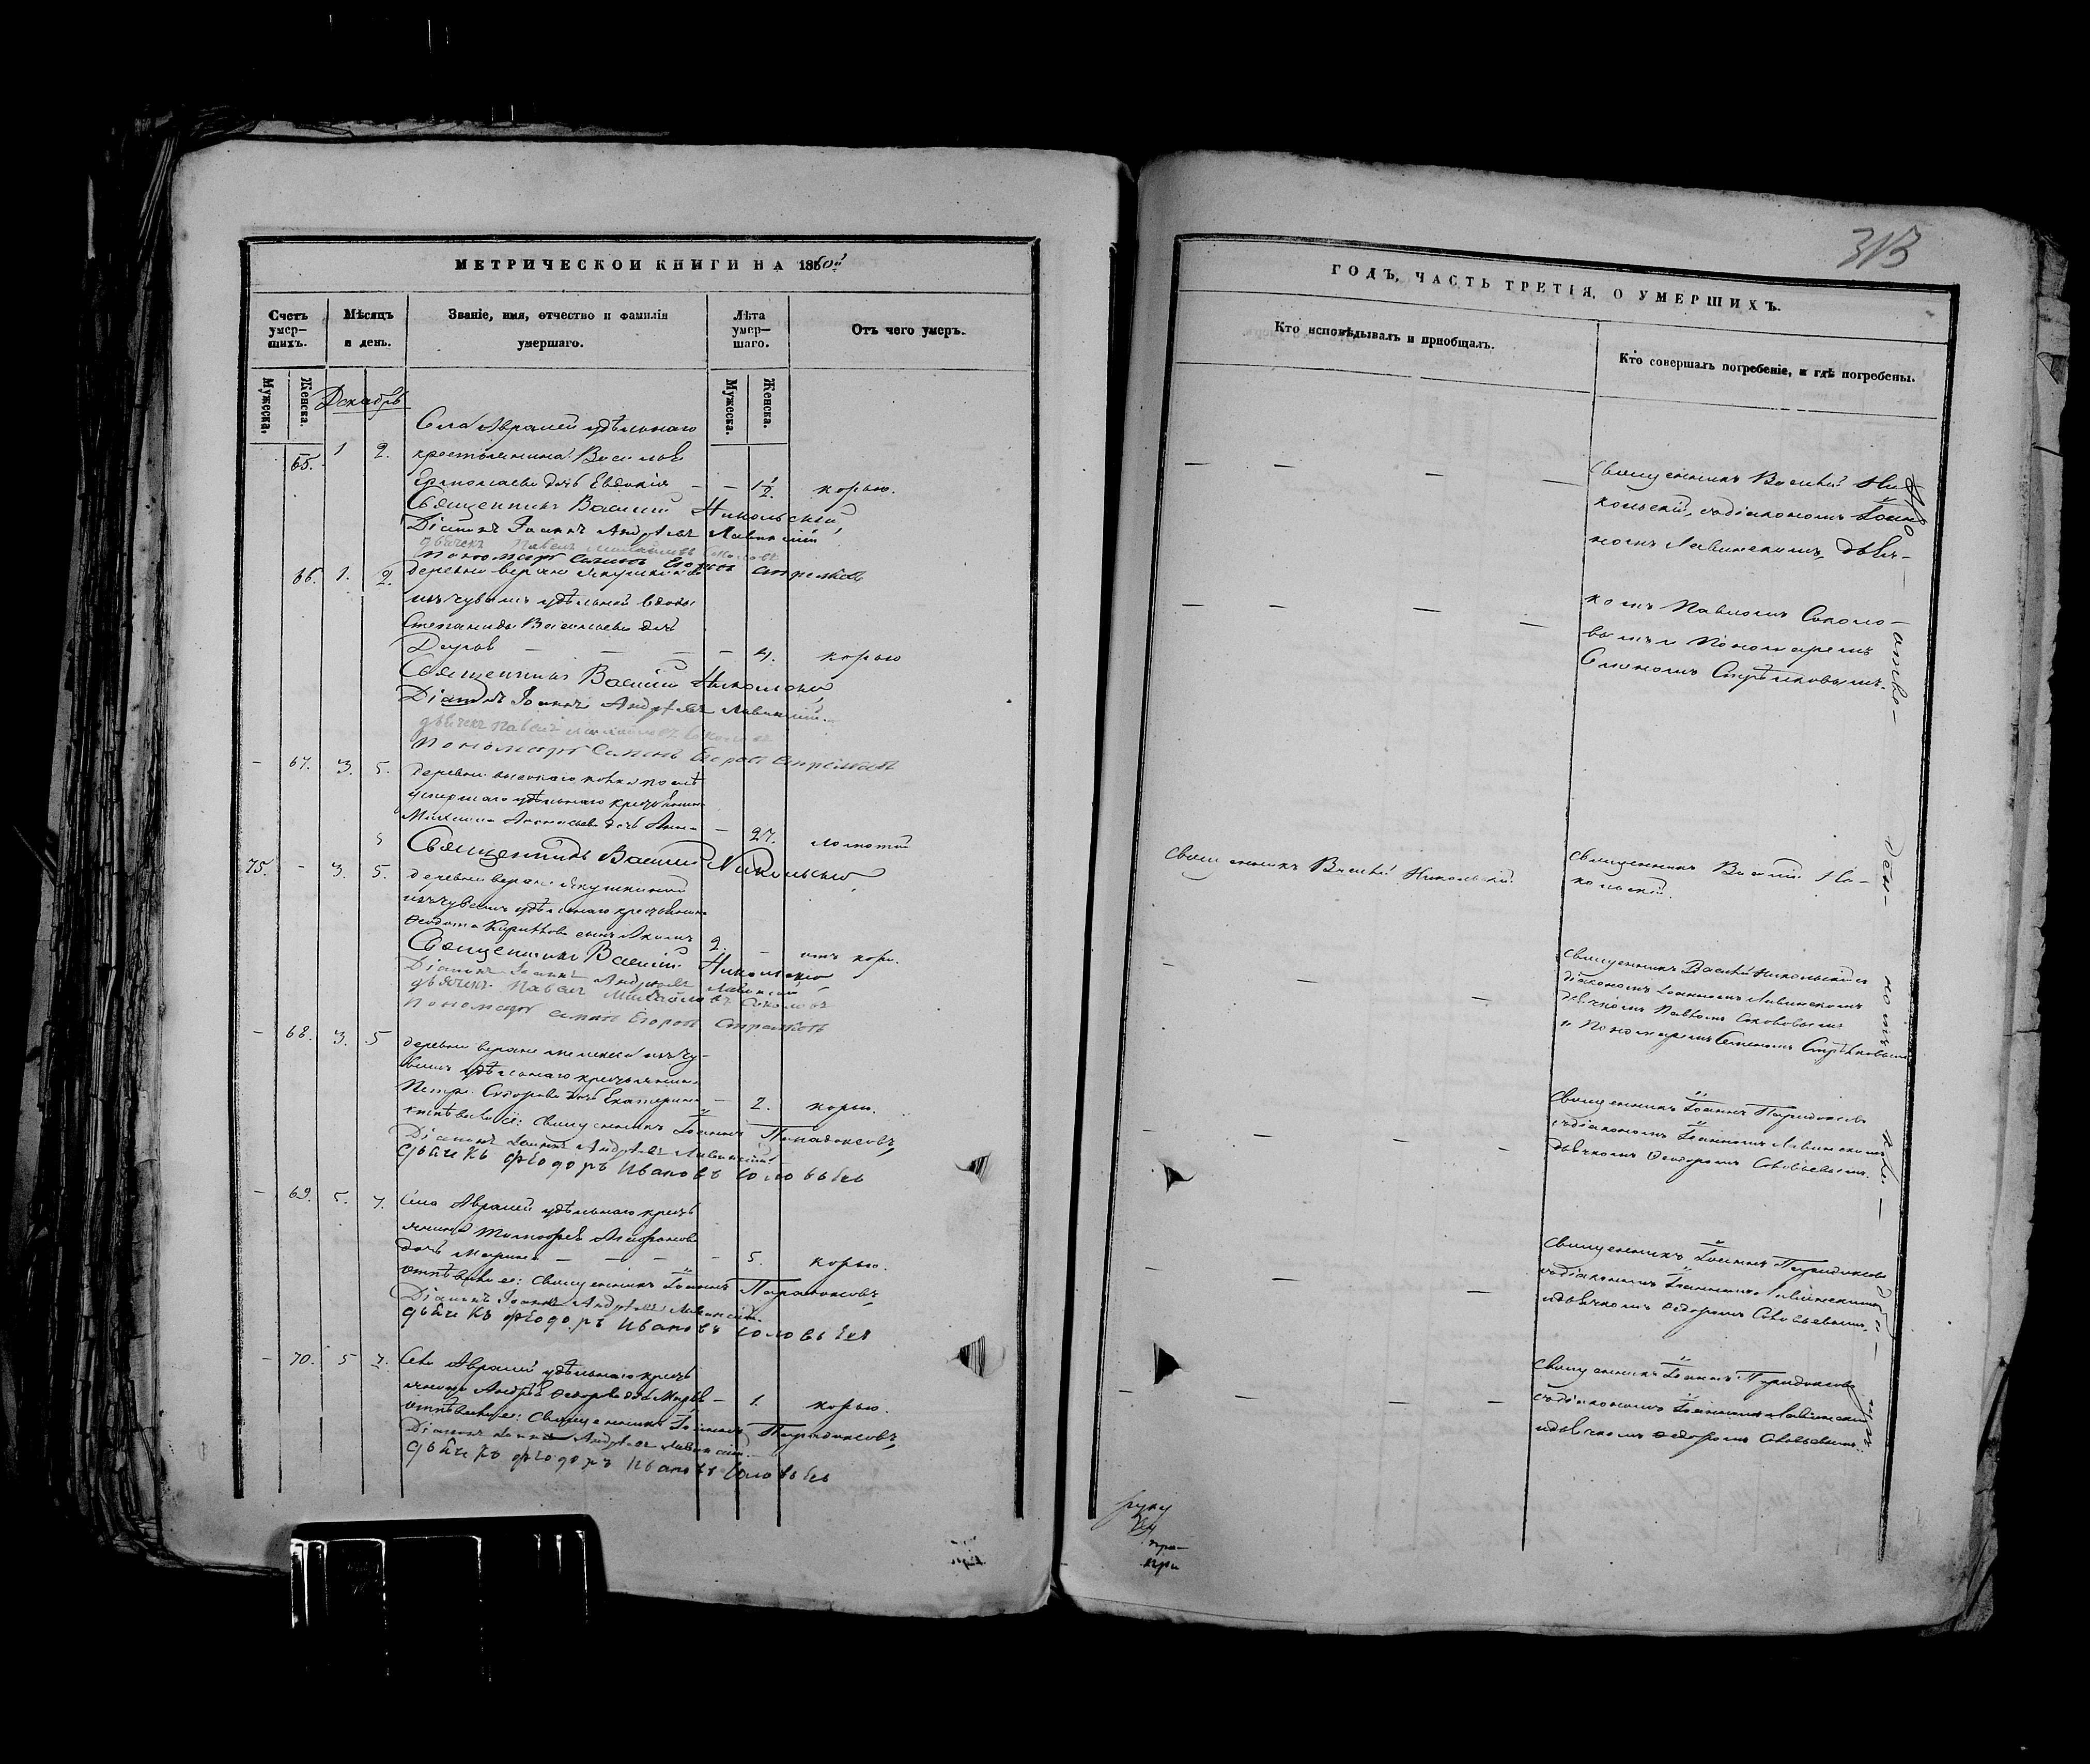 МЕТРИЧЕСКОЙ КНИГИ НА 1860й
Счетъ умер-шихъ.
Мѣсяцъ и день.
Званіе, имя, отчество и фамилія умершаго.
Лѣта умер-шаго.
Отъ чего умеръ.
Мужеска.
Женска.
Декабрь
Мужеска.
Женска.
Села Авралей удѣльнаго
65. 1 2. крестьянина Василья
Ермолаева дочь Евдокія — — 1½. корью.
Священникъ Василій Никольскій,
Діаконъ Іоаннъ Андреевъ Лавинскій
дьячекъ Павелъ Михайловъ Соколовъ
пономарь Семенъ Егоровъ Стрелковъ
66. 1. 2. деревни верхне Якушкиной
изъ чувашъ удѣльной вдовы
Степаниды Васильевой дочь
— — — 4. корью
Священникъ Василій Никольскій,
Діаконъ Іоаннъ Андреевъ Лавинскій.
дьячекъ Павелъ Михайловъ Соколовъ
пономарь Семенъ Егоровъ Стрелковъ
— 67. 3. 5. деревни
умершаго удѣльнаго крестьянина
дочь Анна — 27.
Священникъ Василій Никольскій
75. — 3. 5. деревни верхне Якушкиной
изъ чувашъ удѣльнаго крестьянина
сынъ 2. — отъ кори.
Священникъ Василій Никольскій
Діаконъ Іоаннъ Андреевъ Лавинскій
дьячекъ Павелъ Михайловъ Соколовъ
пономарь Семенъ Егоровъ Стрелковъ
— 68. 3. 5 деревни верхне изъ чу-
вашъ удѣльнаго крестьянина
Петра дочь Екатерина — 2. корью.
отпѣвали ее: Священникъ Іоаннъ Парадоксовъ,
Діаконъ Іоаннъ Андреевъ Лавинскій
дьячекъ Феодоръ Ивановъ Соловьевъ
— 69. 5. 7. Села Авралей удѣльнаго кресть
янина
дочь Марина — — — — 5. корью.
отпѣвали ее: Священникъ Іоаннъ Парадоксовъ,
Діаконъ Іоаннъ Андреевъ Лавинскій.
дьячекъ Феодоръ Ивановъ Соловьевъ
— 70. 5 7. Села Авралей удѣльнаго кресть
янина Андрея — 1. корью.
отпѣвали ее: Священникъ Іоаннъ Парадоксовъ,
Діаконъ Іоаннъ Андреевъ Лавинскій
дьячекъ Феодоръ Ивановъ Соловьевъ
313
ГОДЪ, ЧАСТЬ ТРЕТІЯ, О УМЕРШИХЪ.
Кто исповѣдывалъ и пріобщалъ.
Кто совершалъ погребеніе, и гдѣ погребены.
— — — — Священникъ Василій Ни-
кольскій, съ діакономъ Іоан-
номъ Лавинскимъ, дьяч-
— — — — комъ Павломъ Соколо-
вымъ и Пономаремъ
Семеномъ Стрѣлковымъ.
Священникъ Василій Никольскій.
Священникъ Василій Ни-
кольскій.
— — — Священникъ Василій Никольскій съ
діакономъ Іоанномъ Лавинскимъ
дьячкомъ Павломъ Соколовымъ
и Пономаремъ Семеномъ Стрѣлковымъ
— — — — Священникъ Іоаннъ Парадоксовъ
съ діакономъ Іоанномъ Лавинскимъ
дьячкомъ Феодоромъ Соловьевымъ.
— — — Священникъ Іоаннъ Парадоксовъ
съ діакономъ Іоанномъ Лавинскимъ
и дьячкомъ Федоромъ Соловьевымъ.
— — — — Священникъ Іоаннъ Парадоксовъ
съ діакономъ Іоанномъ Лавинскимъ
и дьячкомъ Федоромъ Соловьевымъ.